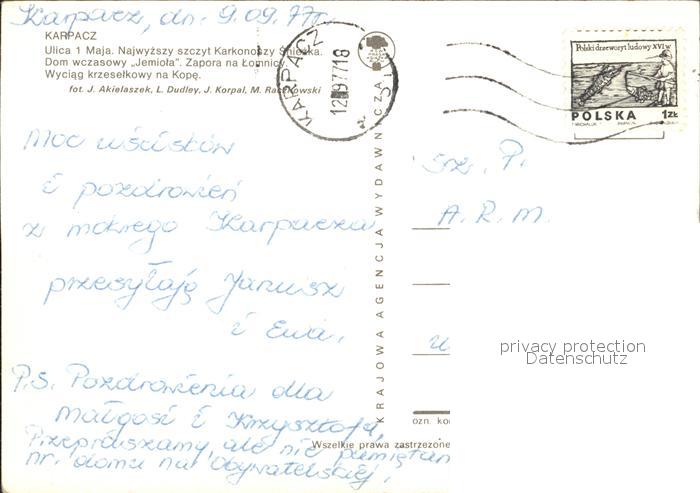 Karpacz, dn. 9.09.77r.
KARPACZ
Ulica 1 Maja. Najwyższy szczyt Karkonoszy Śnieżka.
Dom wczasowy „Jemioła". Zapora na Łomnicy
Wyciąg krzesełkowy na Kopę.
fot. J. Akielaszek, L. Dudley, J. Korpal, M. Raczkowski
Moc uścisków
i pozdrowień
z mokrego Karpacza
przesyłają Janusz
i Ewa.
P.S. Pozdrowienia dla
Małgosi i Krzysztofa.
Przepraszamy, ale nie pamiętam
nr. domu na Obywatelskiej.
KARPACZ
KRAJOWA AGENCJA WYDAWNICZA
Polski drzeworyt ludowy XVI w
POLSKA 1ZŁ
Sz. P.
A. R. M.
u
privacy protection
Datenschutz
ozn. ko
Wszelkie prawa zastrzeżone